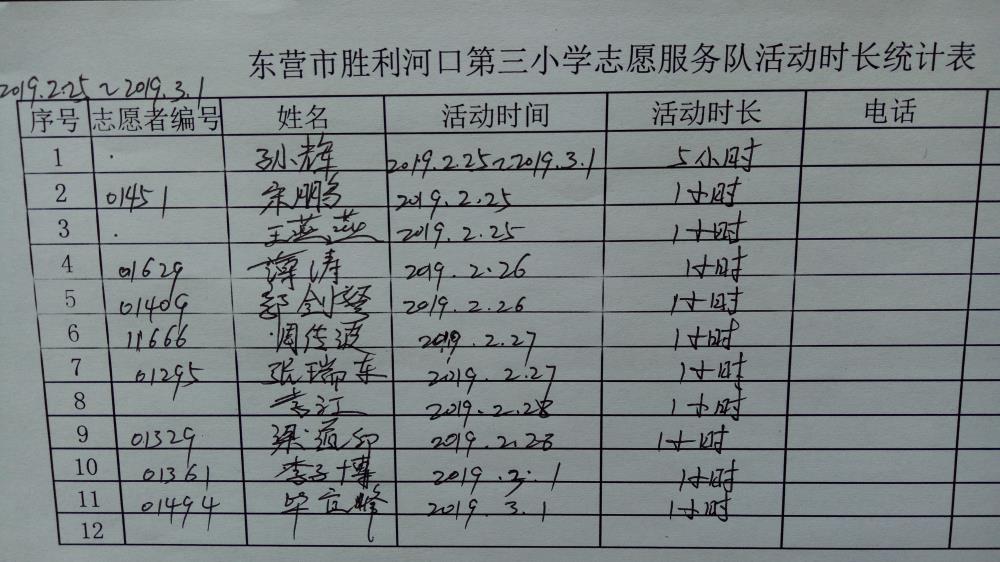 东营市胜利河口第三小学志愿服务队活动时长统计表
2019.2.25~2019.3.1
序号 志愿者编号 姓名 活动时间 活动时长 电话
1 · 孙小辉 2019.2.25~2019.3.1 5小时
2 01451 宋鹏 2019.2.25 1小时
3 · 王燕燕 2019.2.25 1小时
4 01629 薄涛 2019.2.26 1小时
5 01409 2019.2.26 1小时
6 11666 周传波 2019.2.27 1小时
7 01295 张瑞东 2019.2.27 1小时
8 2019.2.28 1小时
9 01329 梁 2019.2.28 1小时
10 01361 李子博 2019.3.1 1小时
11 01494 毕 峰 2019.3.1 1小时
12